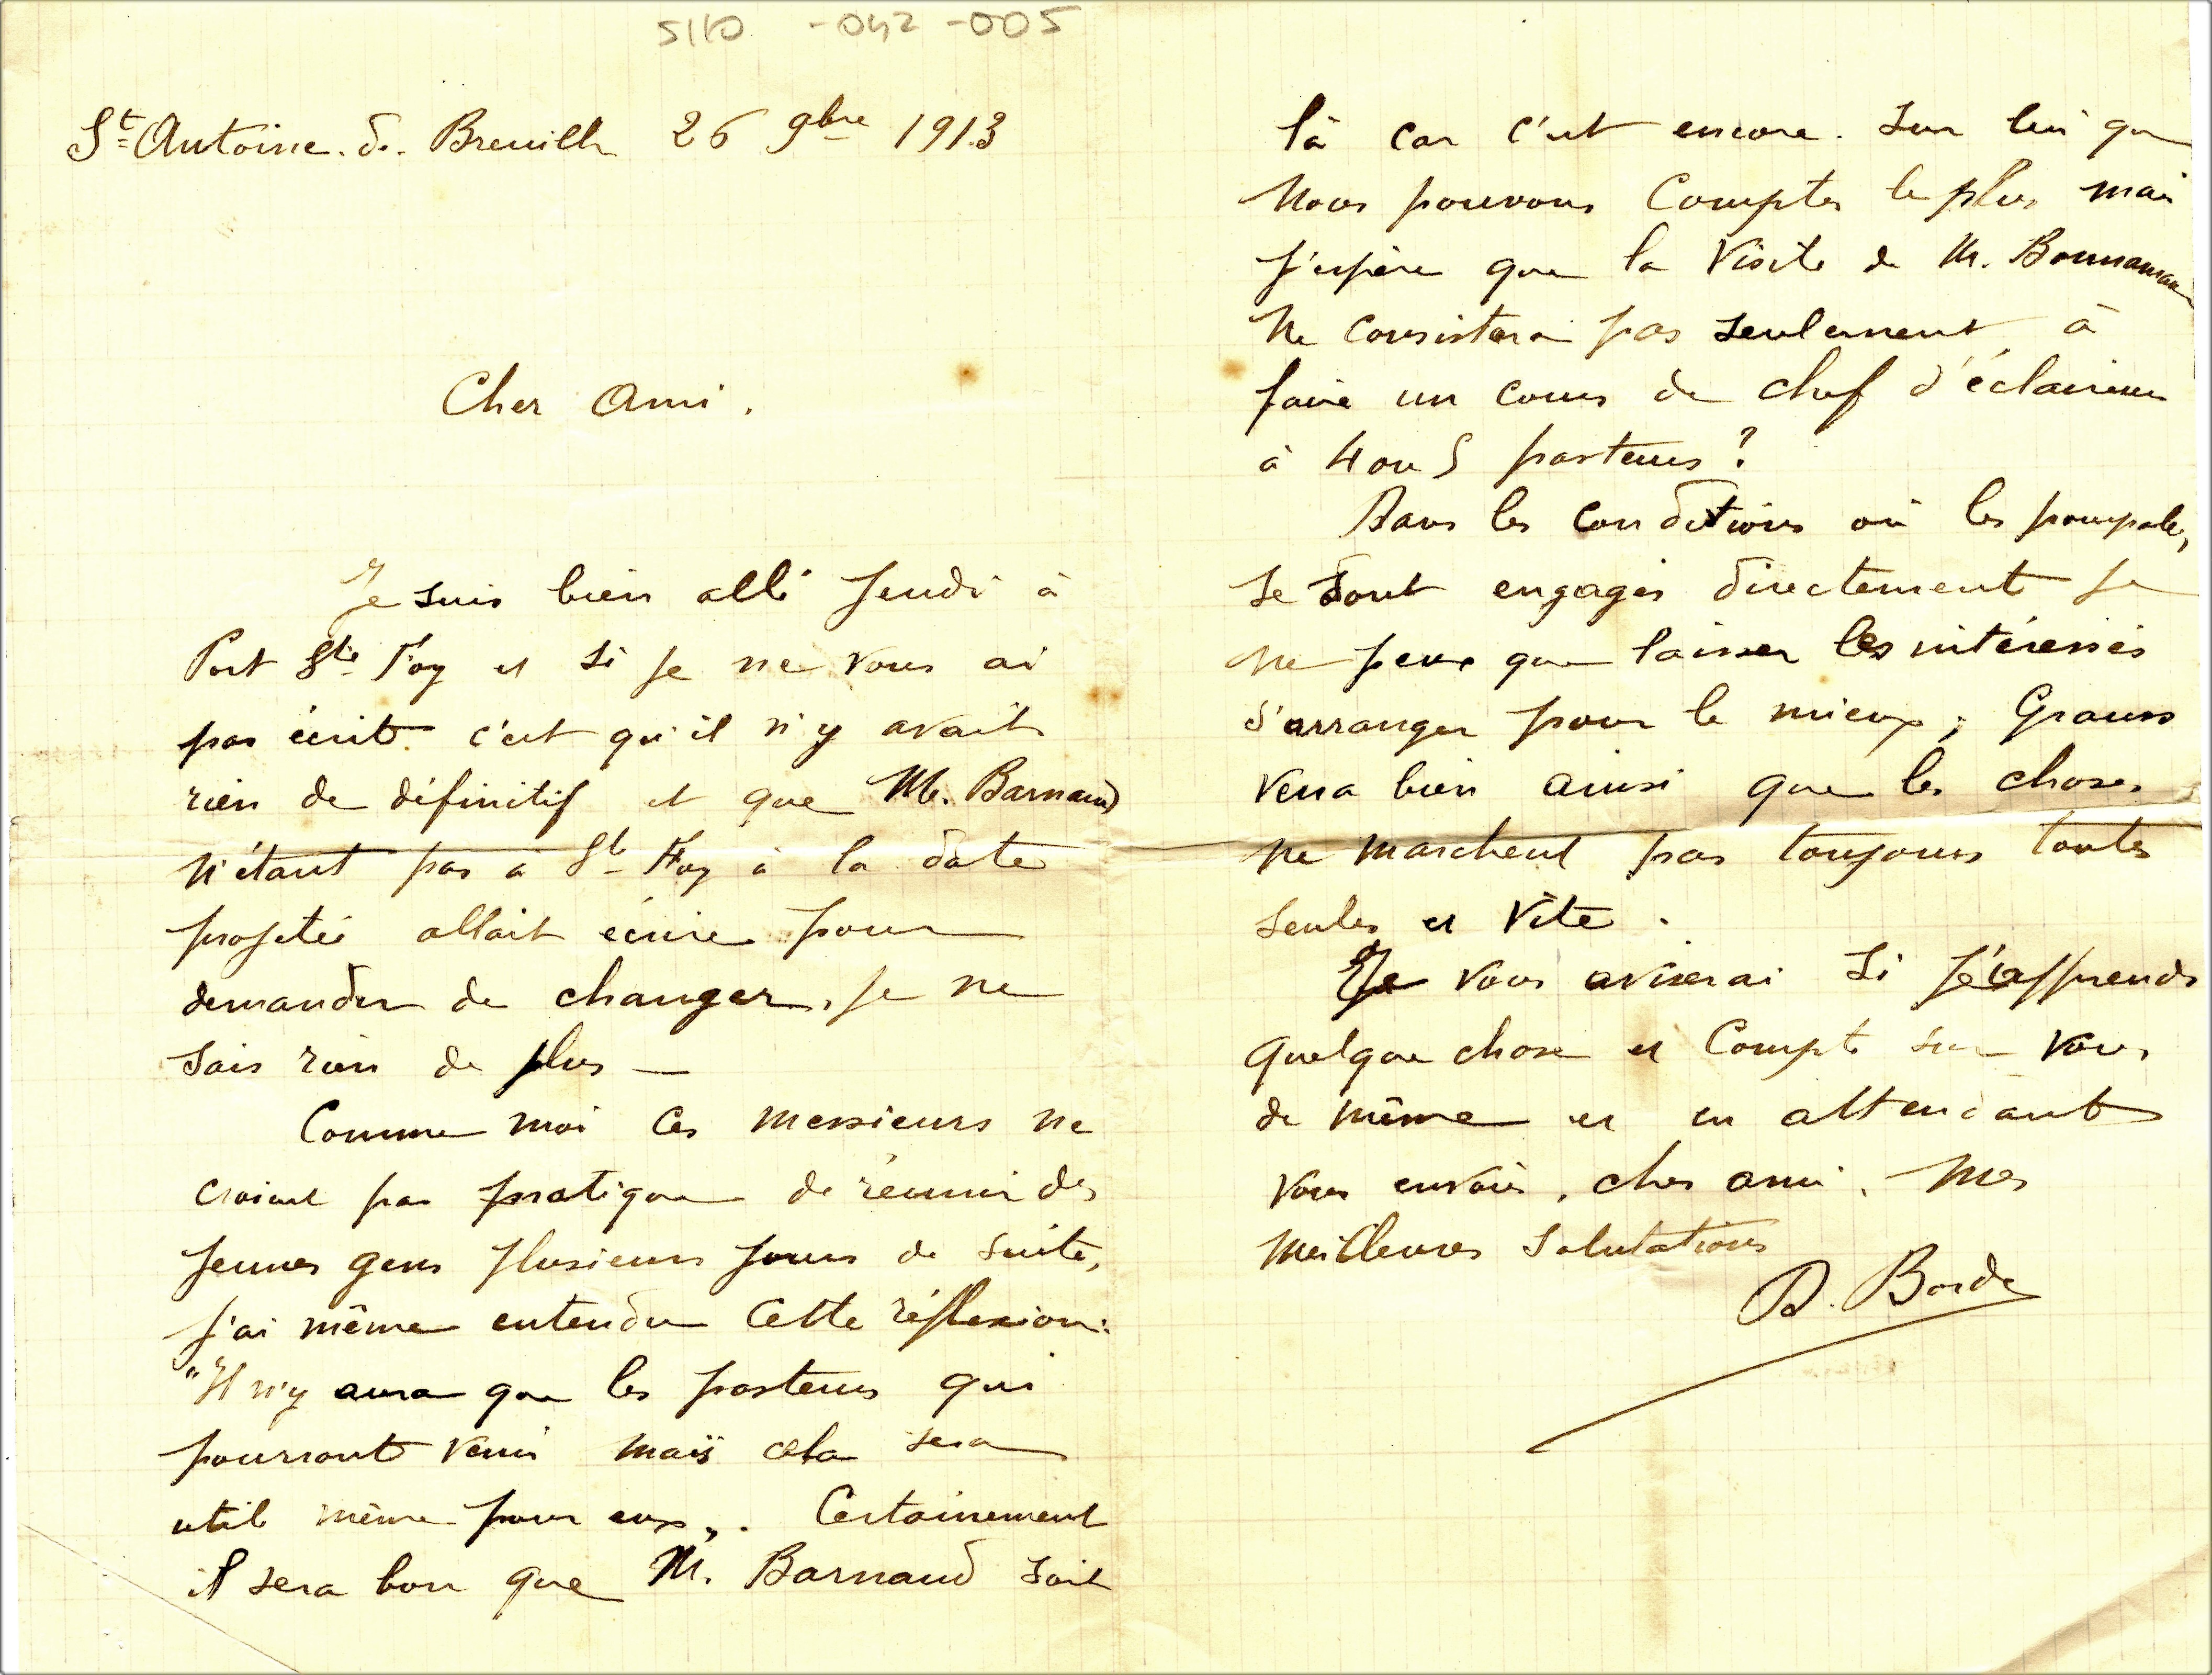 5110 -042 -005
St Antoine. de. Breuilh 26 9bre 1913
Cher Ami.
Je suis bien allé Jeudi à
Port Ste Foy et si je ne vous ai
pas écrit c'est qu'il n'y avait
rien de définitif et que Mr. Barnaud
n'étant pas à Ste Foy à la date
projetée allait écrire pour
demander de changer, je ne
sais rien de plus —
Comme moi ces messieurs ne
croient pas pratique de réunir des
jeunes gens plusieurs jours de suite,
j'ai même entendu cette réflexion:
"Il n'y aura que les pasteurs qui
pourront venir mais cela sera
utile même pour eux". Certainement
il sera bon que M. Barnaud soit
là car c'est encore sur lui que
nous pouvons compter le plus mais
j'espère que la visite de M. Bonnamaux
ne consistera pas seulement à
faire un cours de chef d'éclaireurs
à 4 ou 5 pasteurs?
Dans les conditions où les pourpalers
se sont engagés directement je
ne peux que laisser les intéressés
s'arranger pour le mieux; Grauss
verra bien ainsi que les choses
ne marchent pas toujours toutes
seules et vite.
Je vous aviserai si j'apprends
quelque chose et compte sur vous
de même et en attendant
vous envoie, cher ami, mes
meilleures salutations
D. Borde